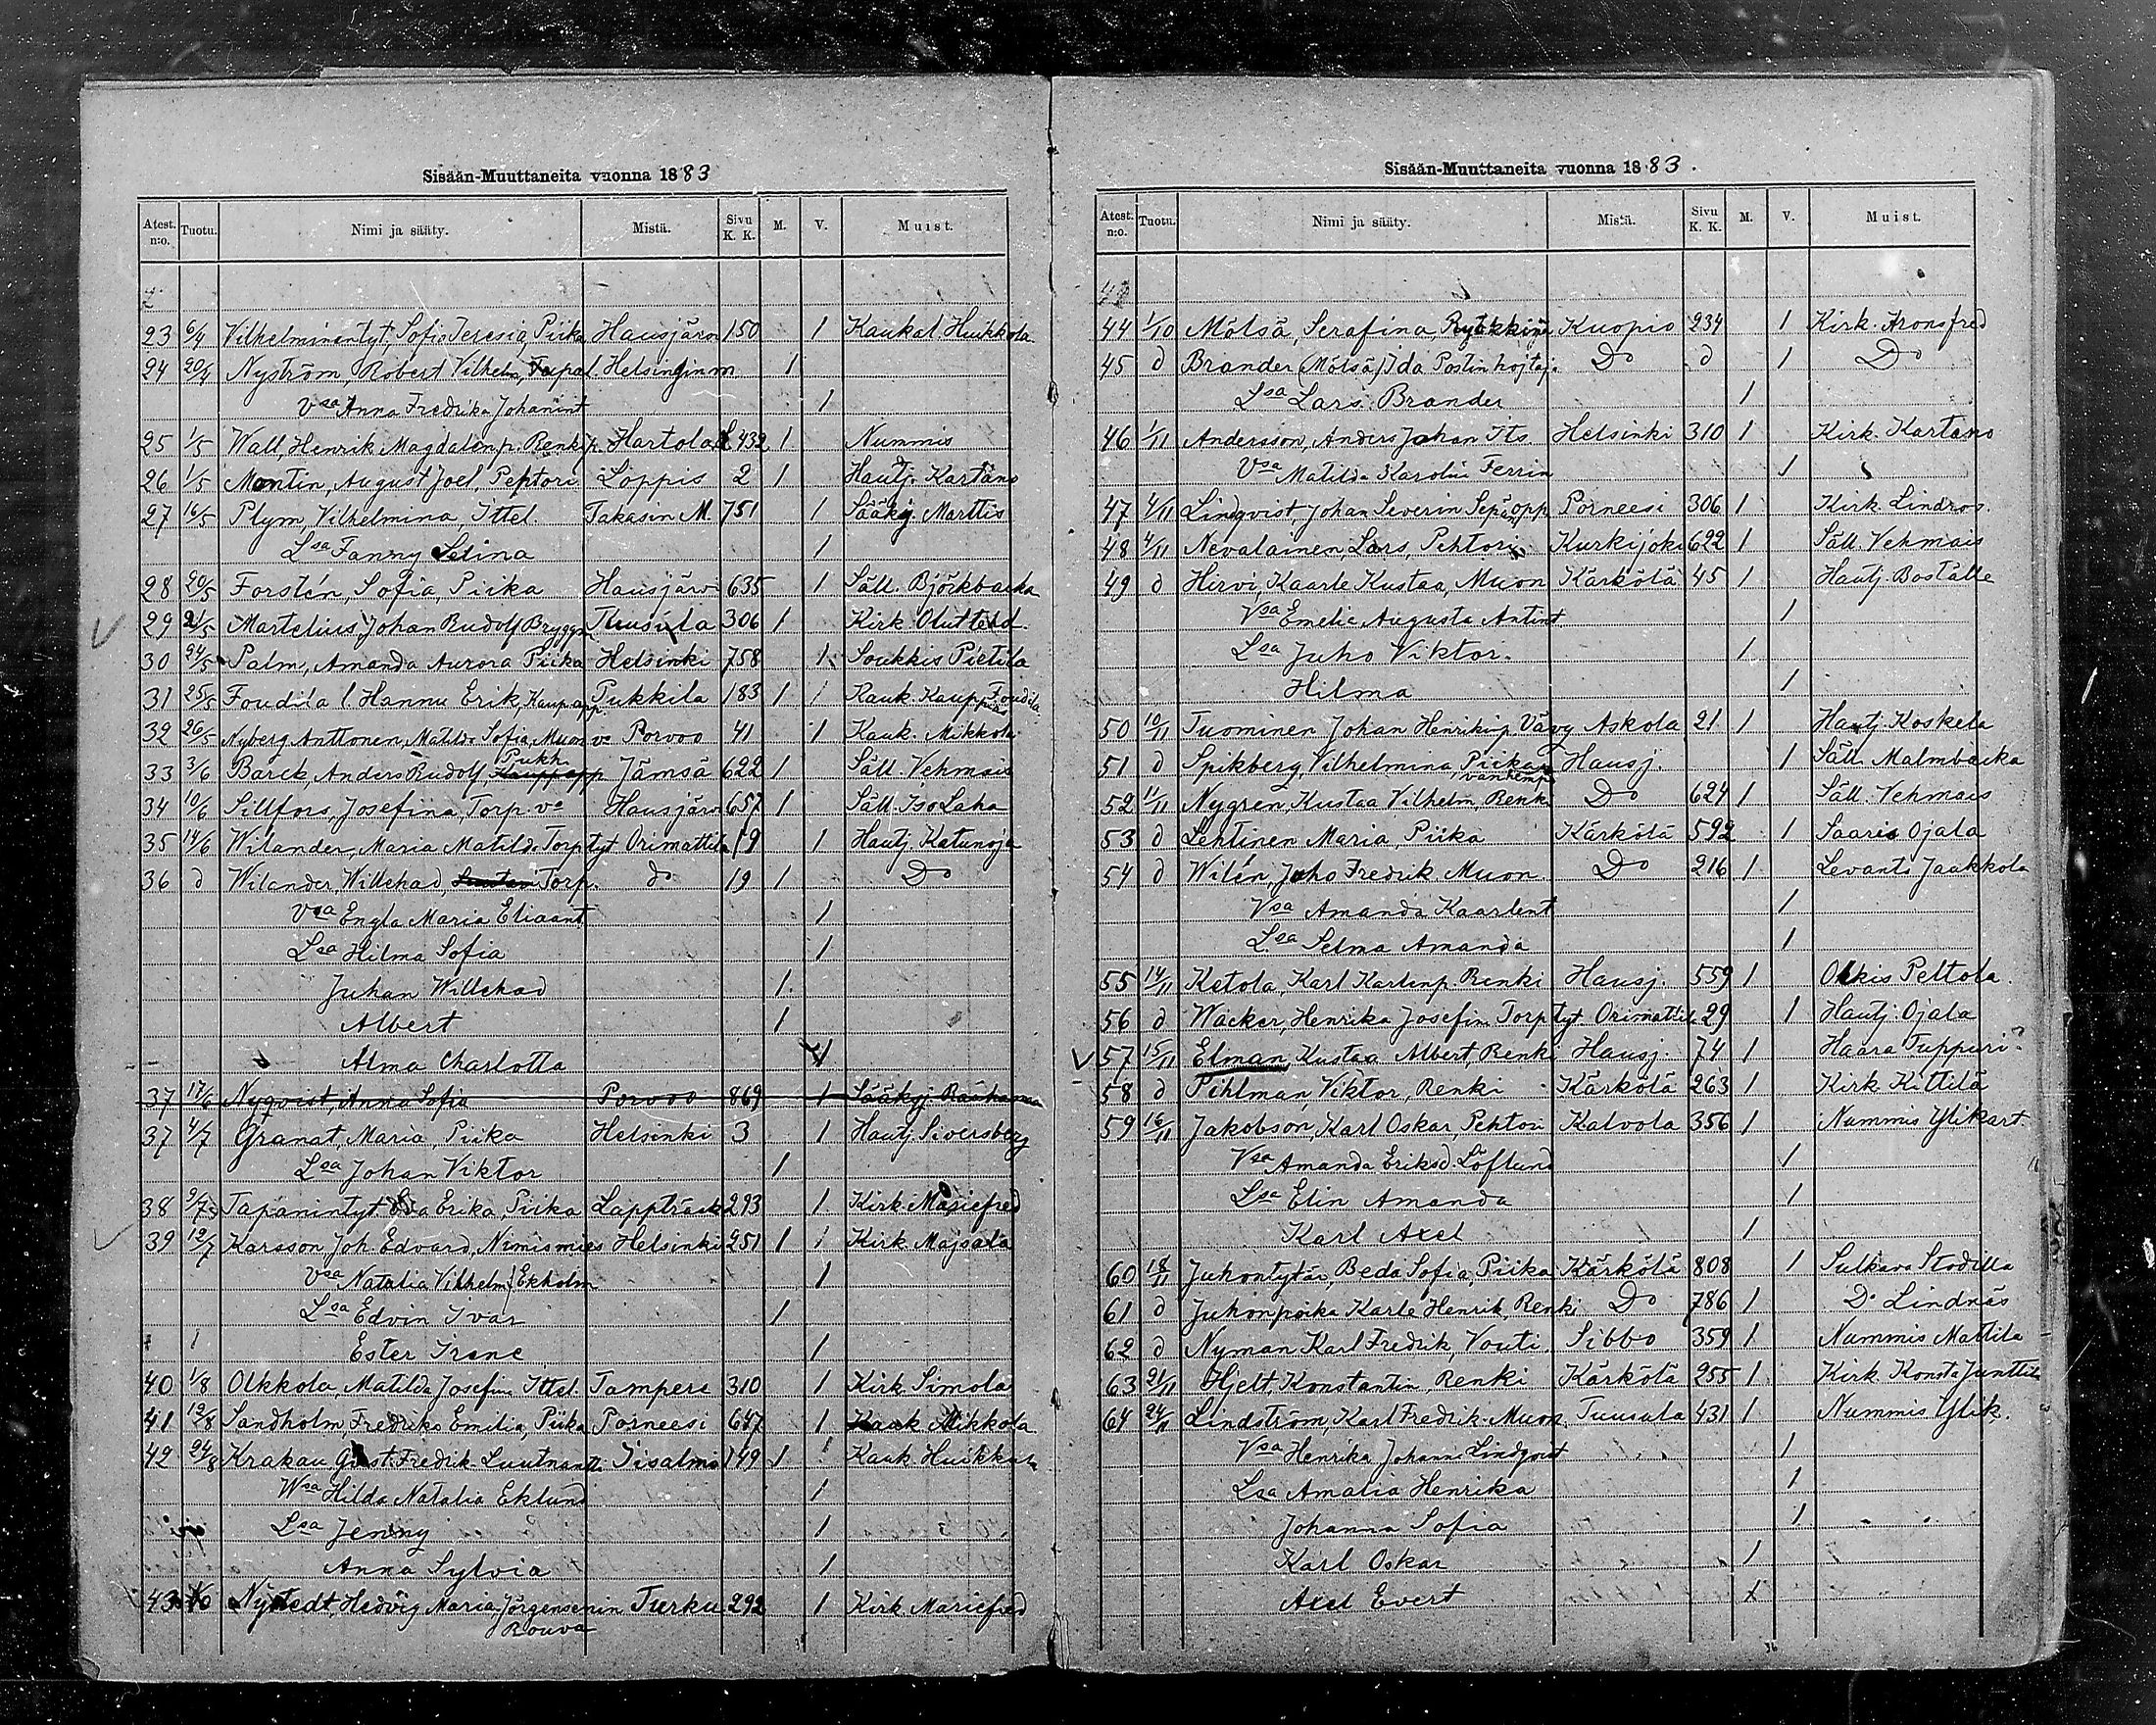 Sisään-Muuttaneita vuonna 1883
Atest. n:o. Tuotu. Nimi ja sääty. Mistä. Sivu K. K. M. V. Muist.
23 6/4 Vilhelminentyt, Sofia Teresia, Piika Hausjärvi 150 1 Kaukal. Huikkola
24 20/4 Nyström, Robert Vilhelm, Helsingin m 1
Vsa Anna Fredrika Johanint 1
25 1/5 Wall, Henrik Magdalenp. Renki Hartola 432 1 Nummis
26 1/5 Montin, August Joel, Pehtori Loppis 2 1 Hautj. Kartano
27 16/5 Plym, Vilhelmina, Ittel. Takasin M. 751 1 Sääksj Marttis
Lsa Fanny Selina 1
28 20/5 Forstén, Sofia, Piika Hausjärvi 635 1 Säll. Björkbacka
29 21/5 Martelius, Johan Rudolf Bryggm Tuusula 306 1 Kirk. Oluttehd.
30 24/5 Palm, Amanda Aurora Piika Helsinki 758 1 Soukkis Pietila
31 25/5 Foudila l. Hannu Erik, Kaup.app. Pukkila 183 1 Kauk. Kauppias Foudila.
32 26/5 Nyberg Anttonen, Matilda Sofia, Muon va Porvoo 41 1 Kauk. Mikkola
33 3/6 Barck, Anders Rudolf, Kauppapp Pukh. Jämsä 622 1 Säll. Vehmais
34 10/6 Sillfors, Josefina, Torp. va Hausjärvi 657 1 Säll Iso Laha
35 14/6 Wilander, Maria Matilda Torp tyt Orimattila 19 1 Hautj. Katunoja
36 d Wilander, Willehad, Torp. do 19 1 Do
Vsa Engla Maria Eliaant 1
Lsa Hilma Sofia 1
Juhan Willehad 1
Albert 1
Alma Charlotta 1
37 17/6 Nyqvist, Anna Sofia Porvoo 869 1 Sääksj Raahanna
37 4/7 Granat, Maria, Piika Helsinki 3 1 Hautj Siversberg
Lsa Johan Viktor 1
38 9/7 Tapanintyt Eva Erika, Piika Lappträsk 293 1 Kirk. Mariefred
39 12/7 Karsson, Joh. Edvard, Nimismies Helsinki 251 1 1 Kirk Majsala
Vsa Natalia Vilhelm. Ekholm 1
Lsa Edvin Ivar 1
Ester Irene 1
40 1/8 Olkkola, Matilda Josefina Ittel. Tampere 310 1 Kirk. Simola
41 12/8 Sandholm, Fredrika Emilia, Piika Porneesi 647 1 Kauk Mikkola
42 24/8 Krakau Gust. Fredrik Luutnantti Iisalmi 149 1 1 Kauk. Huikkala
Wsa Hilda Natalia Eklund 1
Lsa Jenny 1
Anna Sylvia 1
43 Nystedt, Hedvig Maria Jörgensenin Turku 292 1 Kirk Mariefred
Rouva
Sisään-Muuttaneita vuonna 1883.
Atest. n:o. Tuotu. Nimi ja sääty. Mistä. Sivu K. K. M. V. Muist.
44 1/10 Mölsä, Serafina, Ryökkinä Kuopio 234 1 Kirk. Kronsfred
45 d Brander (Mölsä) Ida Postin hojtaja Do d 1 Do
Lsa Lars Brander 1
46 1/11 Andersson, Anders Johan Its. Helsinki 310 1 Kirk. Kartano
Vsa Matilda Karolin Ferrin 1
47 4/11 Lindqvist, Johan Severin Sepänopp. Porneesi 306 1 Kirk. Lindros.
48 4/11 Nevalainen, Lars, Pehtori Kurkijoki 622 1 Säll. Vehmais
49 d Hirvi, Kaarle Kustaa, Muon Kärkölä 45 1 Hautj. Boställe
Vsa Emelie Augusta Antint 1
Lsa Juho Viktor. 1
Hilma 1
50 10/11 Tuominen Johan Henrikinp. Vävy Askola 21 1 Hautj. Koskela
51 d Spikberg, Vilhelmina Piikan vanhempi Hausj. 1 Säll. Malmbacka
52 11/11 Nygren, Kustaa Vilhelm Renki Do 624 1 Säll. Vehmais
53 d Lehtinen Maria, Piika Kärkölä 592 1 Saaris Ojala
54 d Wilén, Juho Fredrik Muon. Do 216 1 Levanti Jaakkola
Vsa Amanda Kaarlent 1
Lsa Selma Amanda 1
55 14/11 Ketola, Karl Karlinp. Renki Hausj. 559 1 Olkis Peltola.
56 d Wacker, Henrika Josefina Torp tyt. Orimattila 29 1 Hautj. Ojala
57 15/11 Elman, Kustaa Albert, Renki Hausj. 74 1 Haara Tuppuri?
58 d Pihlman, Viktor, Renki Kärkölä 263 1 Kirk. Kittilä
59 16/11 Jakobson, Karl Oskar, Pehtori Kalvola 356 1 Nummis Ylikart.
Vsa Amanda Eriksd. Löflund 1
Lsa Elin Amanda 1
Karl Axel 1
60 18/11 Juhontytär, Beda Sofia, Piika Kärkölä 808 1 Sulkava Stodilla
61 d Juhonpoika Karle Henrik, Renki Do 786 1 Do Lindnäs
62 d Nyman Karl Fredrik, Vouti. Sibbo 359 1 Nummis Mattila
63 21/11 Hjelt, Konstantin, Renki Kärkölä 255 1 Kirk. Konsta Junttila
64 24/11 Lindström, Karl Fredrik Muon. Tuusula 431 1 Nummis Ylik.
Vsa Henrika Johanna Lindqvist 1
Lsa Amalia Henrika 1
Johanna Sofia 1
Karl Oskar 1
Axel Evert 1